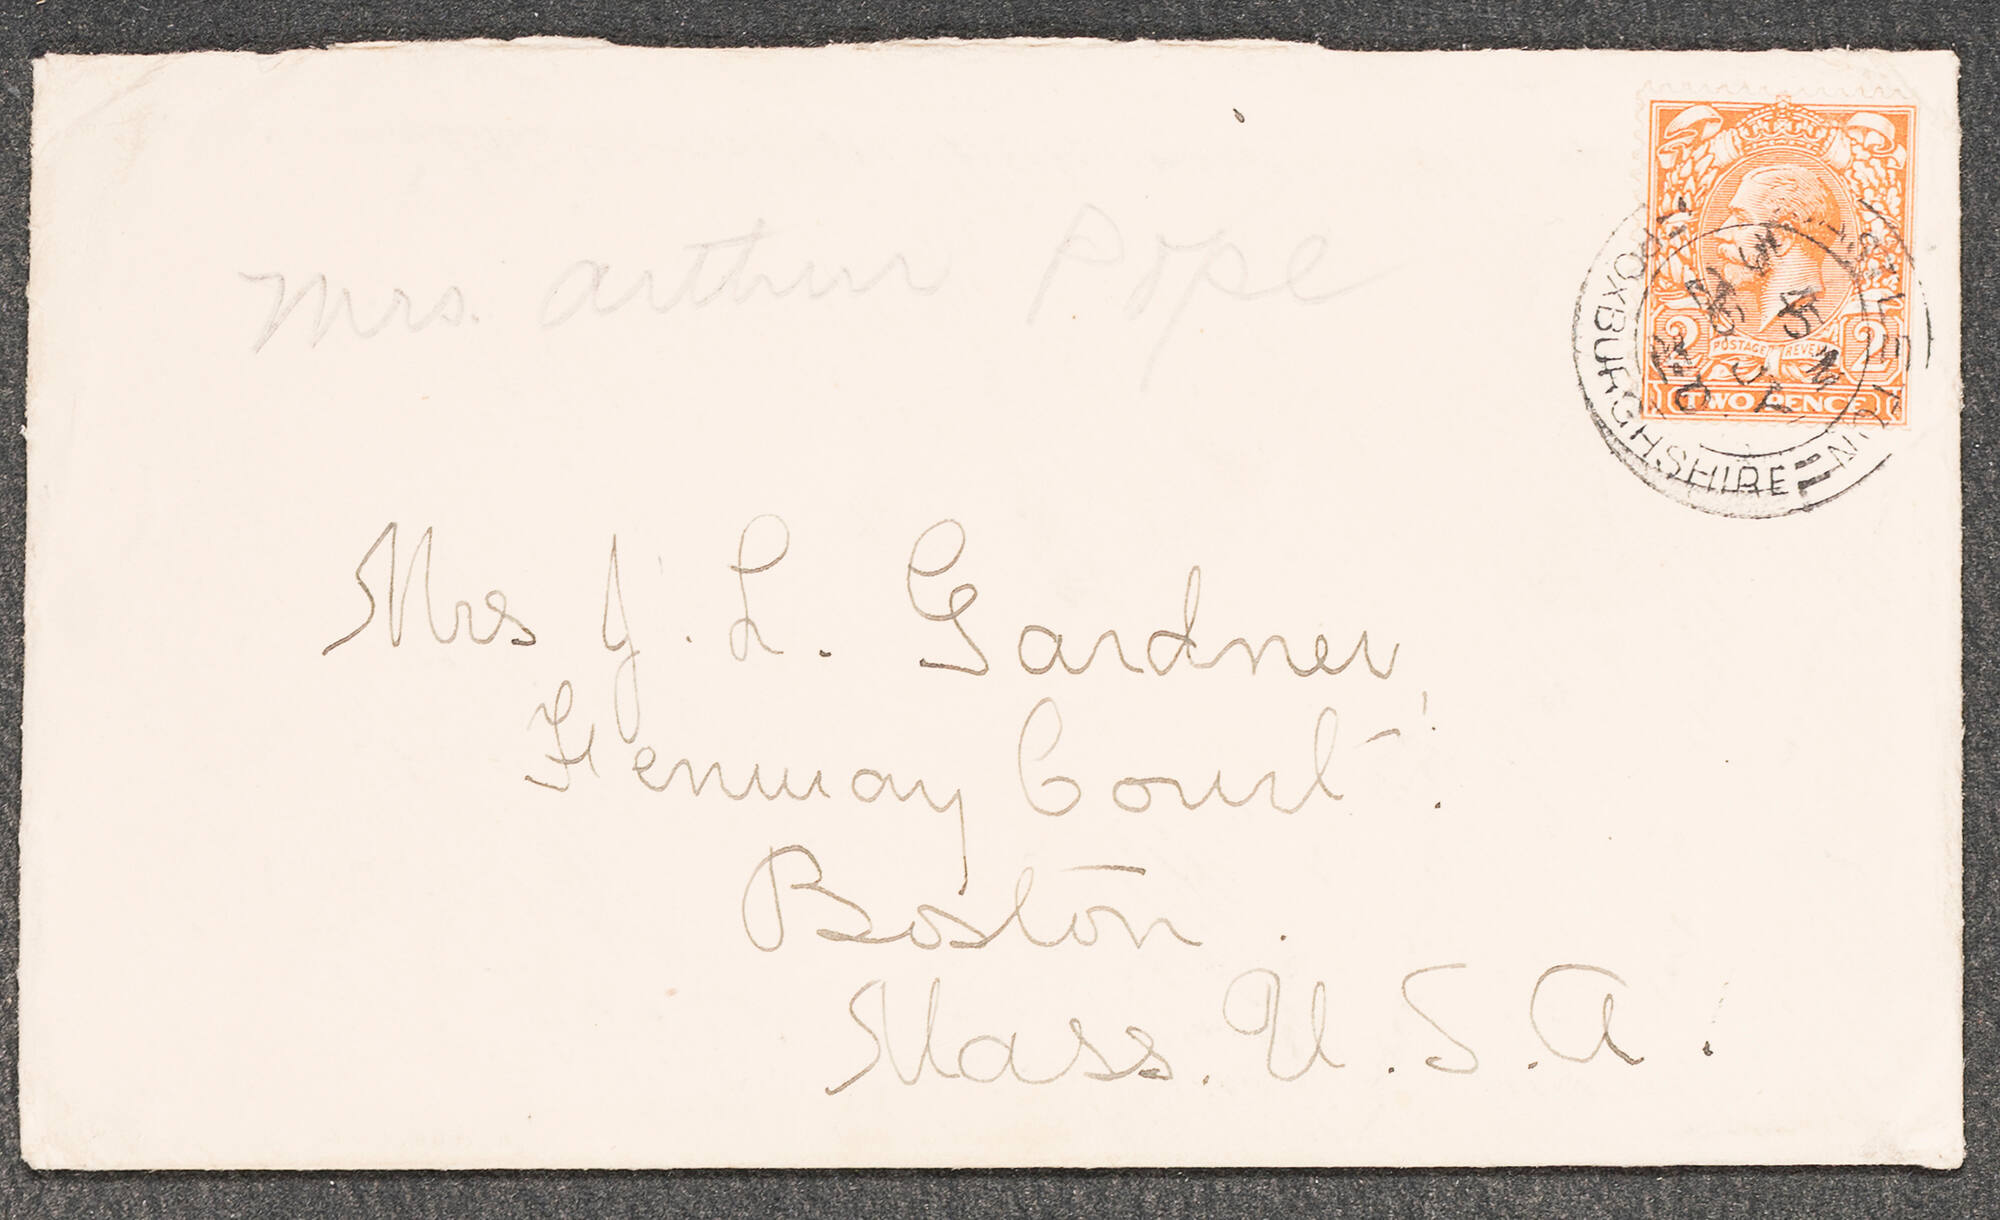 Mrs. Arthur Pope
2 2
POSTAGE REVENUE
TWO PENCE
ROXBURGHSHIRE
Mrs J. L. Gardner,
Fenway Court.
Boston.
Mass. U.S.A.